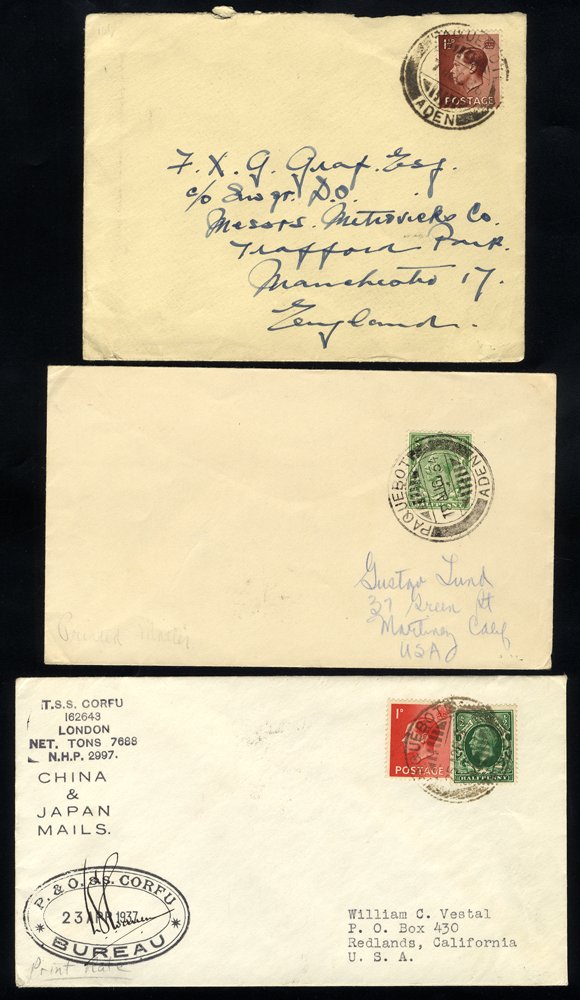 PAQUEBOT
ADEN
POSTAGE
F. X. G. Graf. Esq.
c/o D.O.
Messrs. Metrovicks Co.
Trafford Park.
Manchester 17.
England.
PAQUEBOT
ADEN
HALFPENNY
Gustav Lund
37 Green St
Martinez Calif
USA
Printed Matter
T.S.S. CORFU
162643
LONDON
NET. TONS 7688
N.H.P. 2997.
CHINA
&
JAPAN
MAILS.
1D
POSTAGE
HALFPENNY
P. & O. S.S. CORFU
23 APR 1937
BUREAU
Print Rate
William C. Vestal
P. O. Box 430
Redlands, California
U. S. A.